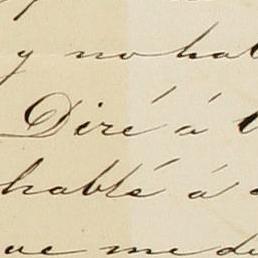 y no hab
Diré á
hablé á
que me de